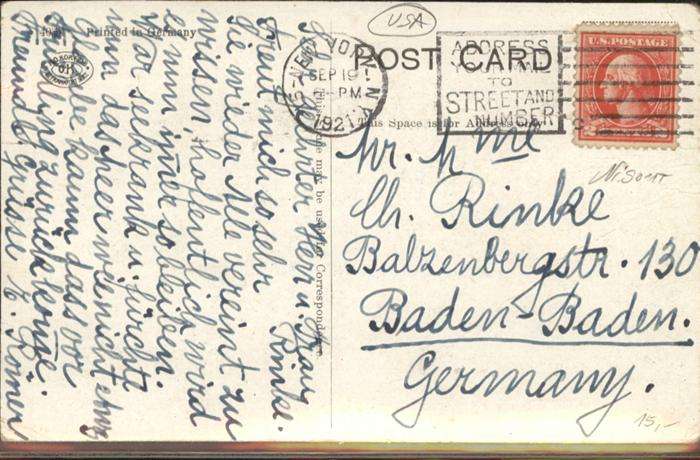 USA
Printed in Germany
POST CARD
NEW YORK, N.Y.
SEP 19
PM
1921
ADDRESS
YOUR MAIL
TO
STREET AND
NUMBER
U.S. POSTAGE
This Space is for Address only.
This Space may be used for Correspondence
Mr. & Mme
Ch. Rinke
Balzenbergstr. 130
Baden-Baden.
Germany.
15,-
Herr u. Frau
Rinke.
Freue mich so sehr
Sie wieder Alle vereint zu
wissen, hoffentlich wird
es nun immer so bleiben.
War seekrank u. fürchte
nun das Meer wie nicht etwas
Glaube kaum dass vor
Frühling zurück komme.
Freundl. Grüsse L. Römer